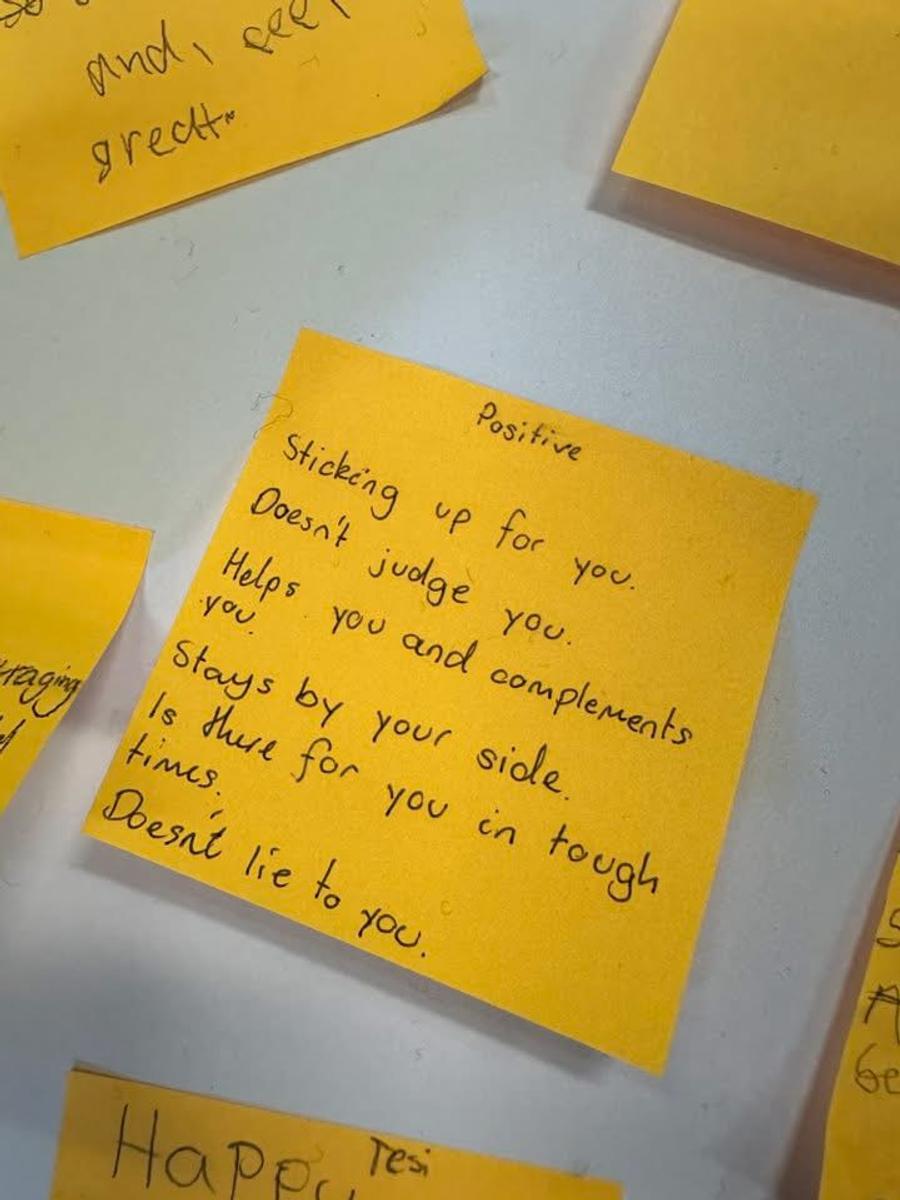 and,
great
Positive
Sticking up for you.
Doesn't judge you.
Helps you and complements
you.
Stays by your side.
Is there for you in tough
times.
Doesn't lie to you.
Tesi